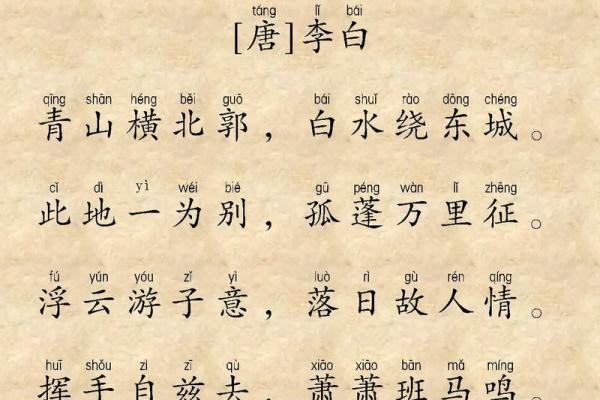 táng lǐ bái
[唐]李白
qīng shān héng běi guō bái shuǐ rào dōng chéng
青山横北郭，白水绕东城。
cǐ dì yì wéi bié gū péng wàn lǐ zhēng
此地一为别，孤蓬万里征。
fú yún yóu zǐ yì luò rì gù rén qíng
浮云游子意，落日故人情。
huī shǒu zì zī qù xiāo xiāo bān mǎ míng
挥手自兹去，萧萧班马鸣。